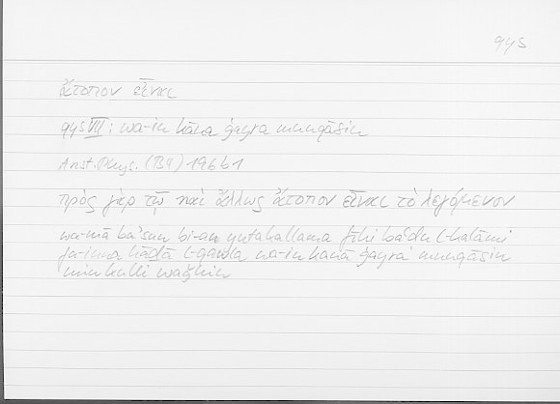 qys
ἄτοπον εἶναι
qys VII: wa-in kāna ġayra munqāsin
Arist. Phys. (B4) 196b1
πρὸς γὰρ τῷ καὶ ἄλλως ἄτοπον εἶναι τὸ λεγόμενον
wa-mā ba'sun bi-an yutakallama fīhi ba'ḍu l-kalāmi
fa-inna hāḏā l-qawla wa-in kāna ġayra munqāsin
min kulli waǧhin